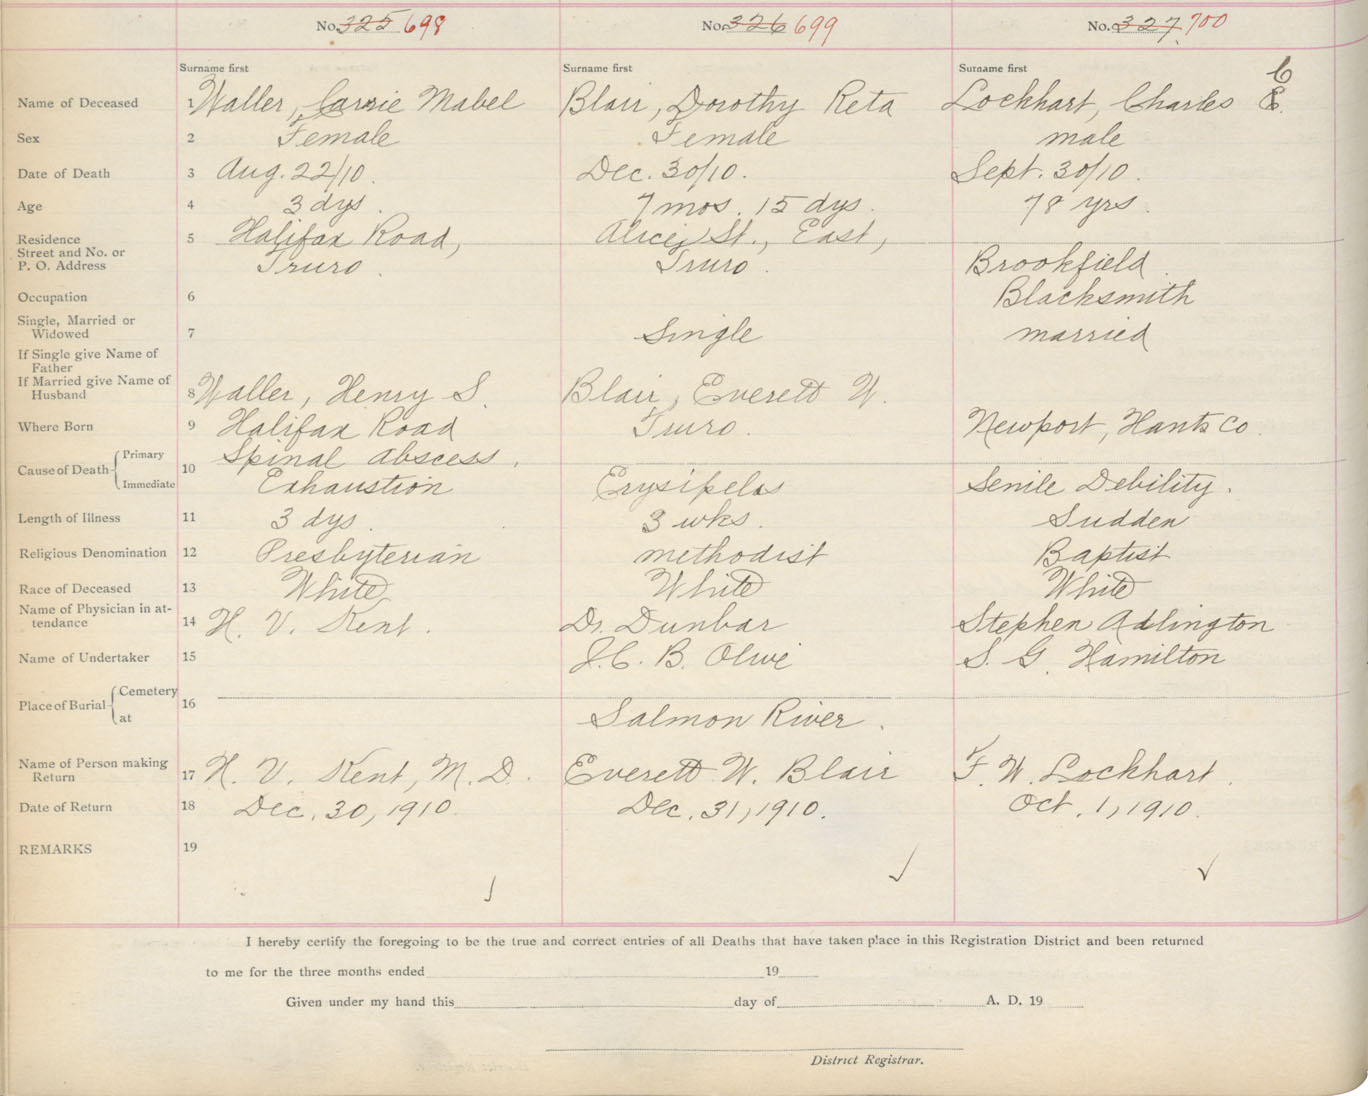 No. 325 698 No. 326 699 No. 327 700
Surname first Surname first Surname first
Name of Deceased 1 Waller, Carrie Mabel Blair, Dorothy Reta Lockhart, Charles C
Sex 2 Female Female male
Date of Death 3 Aug. 22/10. Dec. 30/10. Sept. 30/10.
Age 4 3 dys. 7 mos. 15 dys. 78 yrs.
Residence 5 Halifax Road, Alice St., East,
Street and No. or
P. O. Address Truro. Truro. Brookfield
Occupation 6 Blacksmith
Single, Married or
Widowed 7 Single married
If Single give Name of
Father
If Married give Name of
Husband 8 Waller, Henry S. Blair, Everett W.
Where Born 9 Halifax Road Truro. Newport, Hants Co.
Cause of Death Primary 10 Spinal abscess.
Immediate Exhaustion Erysipelas Senile Debility.
Length of Illness 11 3 dys. 3 wks. Sudden
Religious Denomination 12 Presbyterian methodist Baptist
Race of Deceased 13 White White White
Name of Physician in at-
tendance 14 H. V. Kent. Dr. Dunbar Stephen Adlington
Name of Undertaker 15 J. C. B. Olive S. G. Hamilton
Place of Burial Cemetery 16
at Salmon River.
Name of Person making
Return 17 H. V. Kent, M. D. Everett W. Blair F. W. Lockhart.
Date of Return 18 Dec. 30, 1910. Dec. 31, 1910. Oct. 1, 1910.
REMARKS 19
I hereby certify the foregoing to be the true and correct entries of all Deaths that have taken place in this Registration District and been returned
to me for the three months ended 19
Given under my hand this day of A. D. 19
District Registrar.